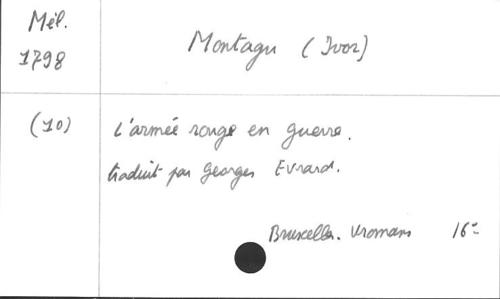 Mél.
1798
Montagu (Ivor)
(10)
L'armée rouge en guerre.
traduit par Georges Evrard.
Bruxelles. Vromans 16°